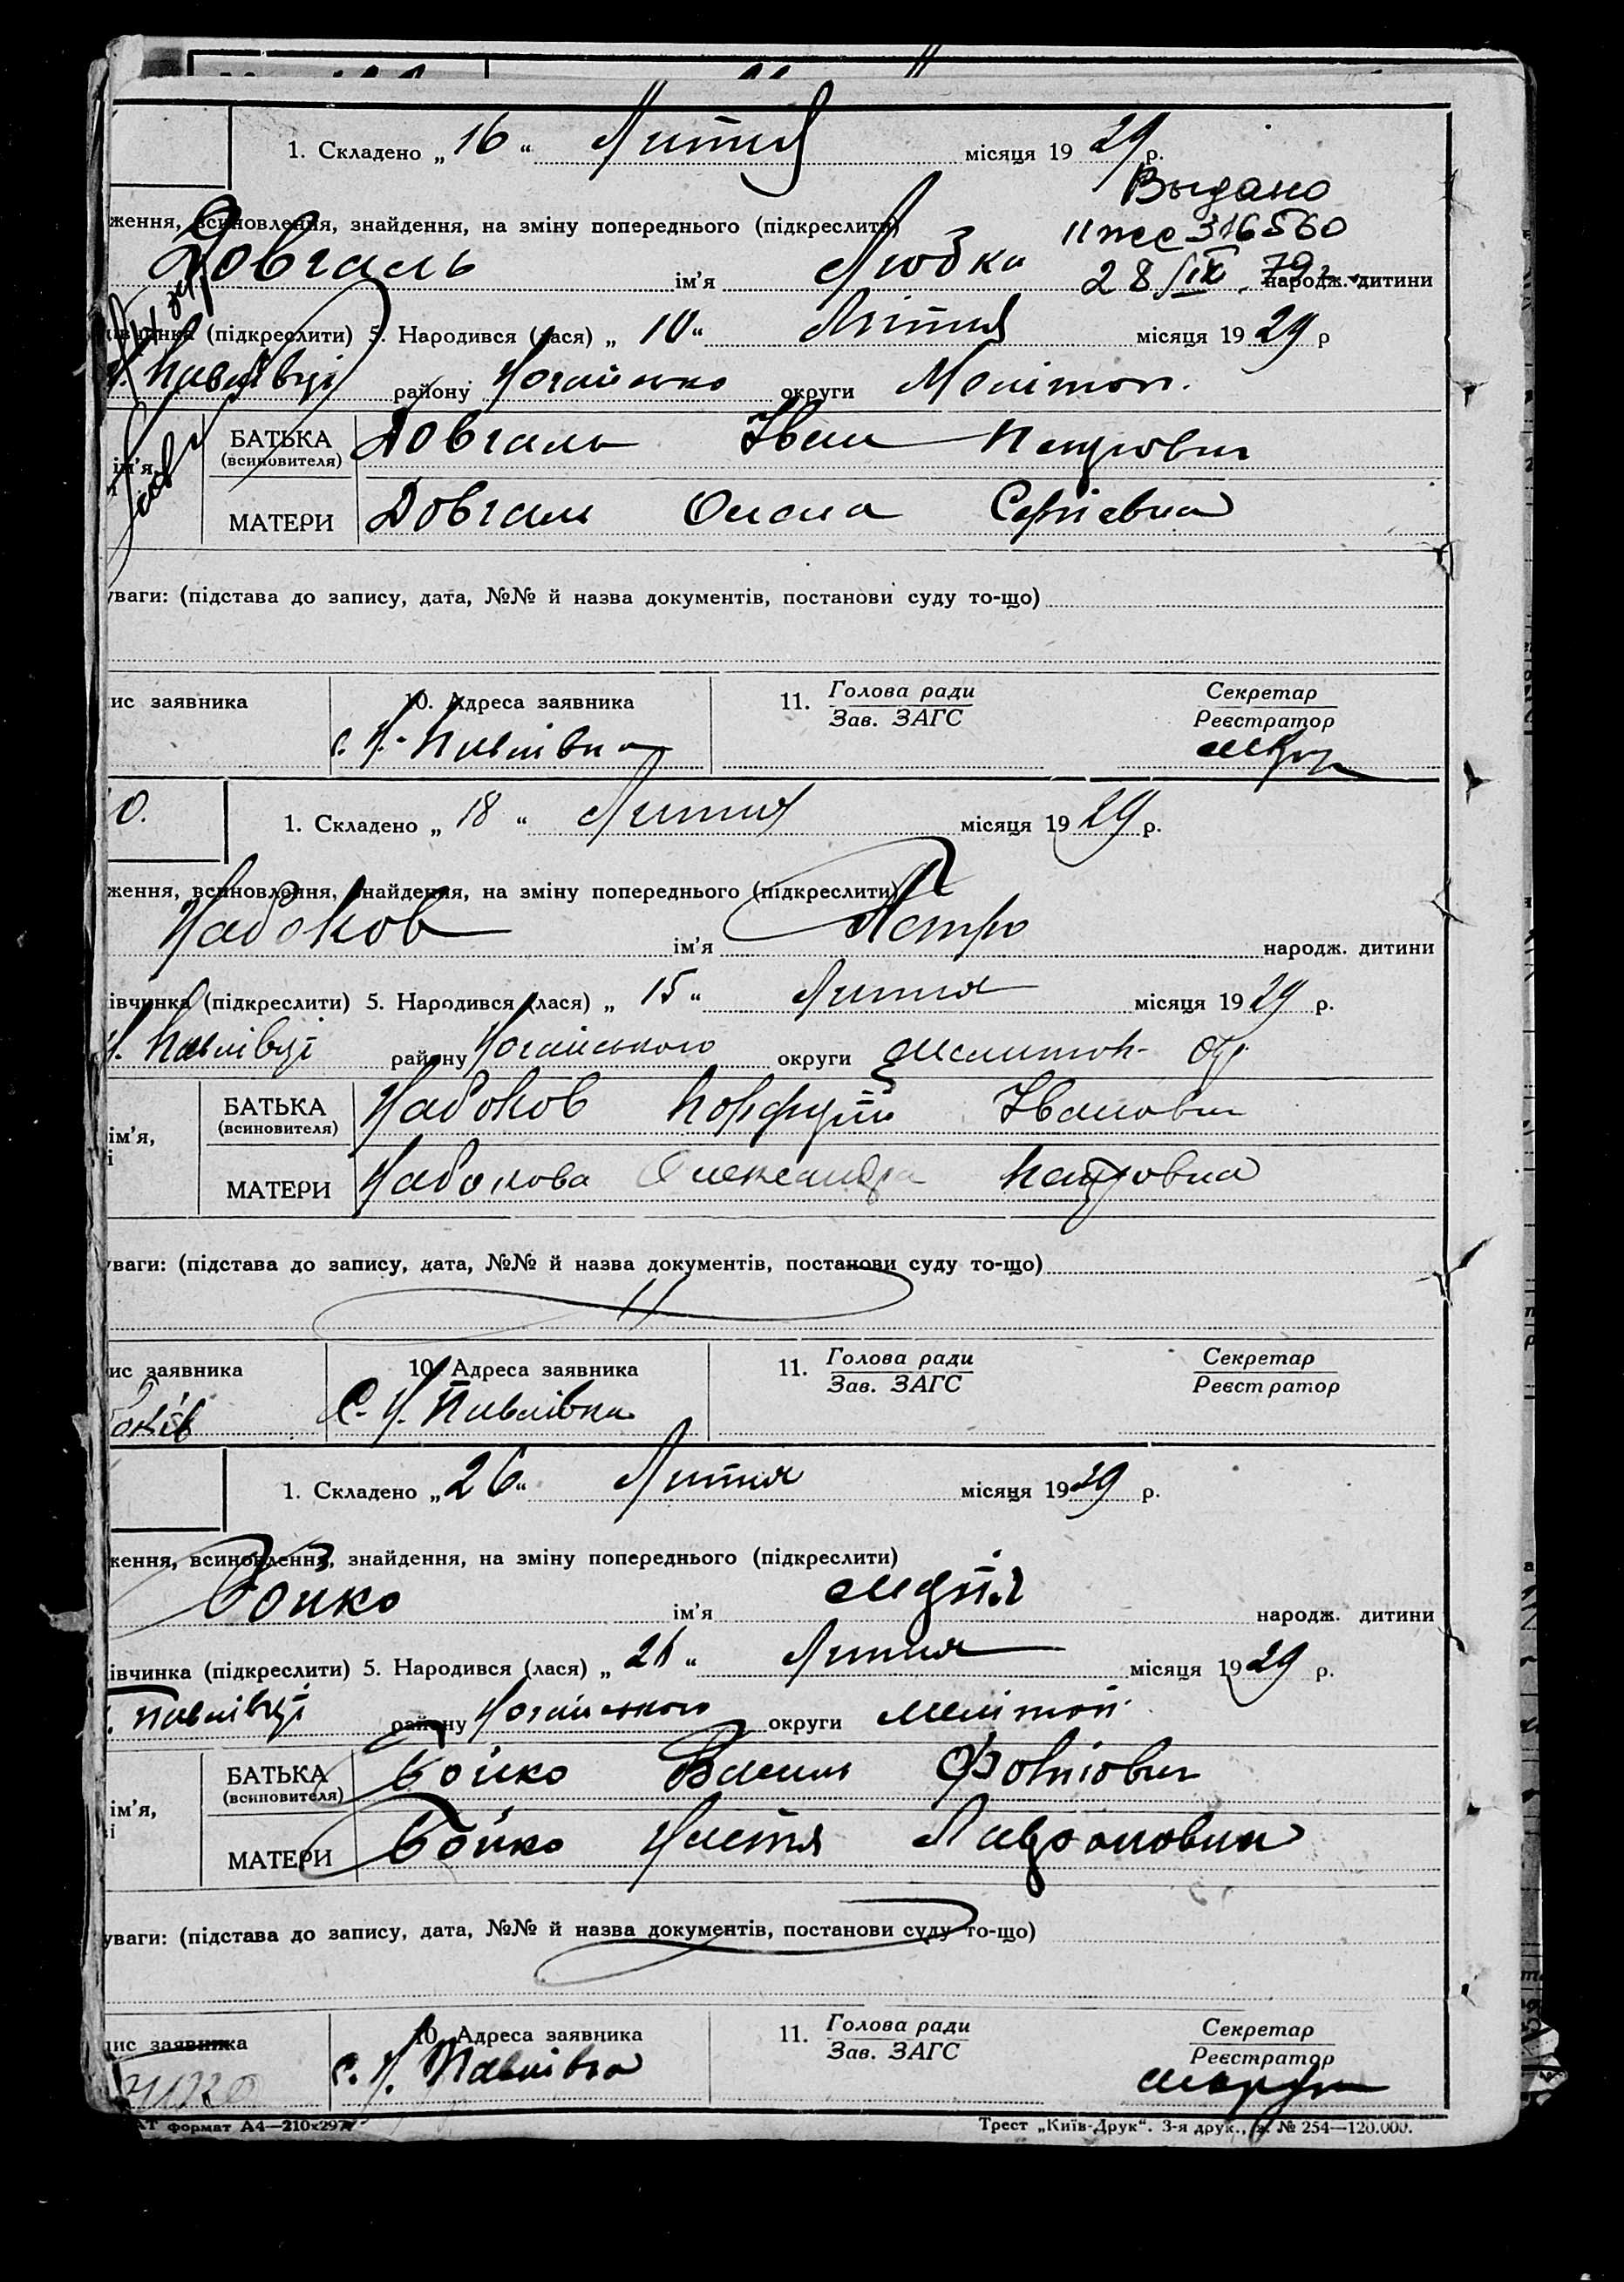 1. Складено „ 16 “ Липня місяця 19 29 р.
Выдано
ження, всиновлення, знайдення, на зміну попереднього (підкреслити)
316560
Довгаль ім’я Любка 28/IX. 79 г. народж. дитини
івчинка (підкреслити) 5. Народився (лася) „ 10 “ Липня місяця 19 29 р
Н. Павлівці району Ногайсько округи Меліто́п.
ім’я, БАТЬКА (всиновителя) Довгаль Іван Петрович
МАТЕРИ Довгаль Олена Сергіевна
уваги: (підстава до запису, дата, №№ й назва документів, постанови суду то-що)
ис заявника 10. Адреса заявника 11. Голова ради Секретар
Зав. ЗАГС Реєстратор
с. Н.-Павлівка
0. 1. Складено „ 18 “ Липня місяця 19 29 р.
ження, всиновлення, знайдення, на зміну попереднього (підкреслити)
Набоков ім’я Петро народж. дитини
івчинка (підкреслити) 5. Народився (лася) „ 15 “ Липня місяця 19 29 р.
Н. Павлівці району Ногайського округи Мелитоп- окр.
ім’я, БАТЬКА (всиновителя) Набоков Іванович
і МАТЕРИ Набокова Олександра Петровна
уваги: (підстава до запису, дата, №№ й назва документів, постанови суду то-що)
ис заявника 10. Адреса заявника 11. Голова ради Секретар
Зав. ЗАГС Реєстратор
боків С. Н. Павлівка
1. Складено „ 26 “ Липня місяця 19 29 р.
ження, всиновлення, знайдення, на зміну попереднього (підкреслити)
Бойко ім’я Марія народж. дитини
івчинка (підкреслити) 5. Народився (лася) „ 21 “ Липня місяця 19 29 р.
. Павлівці району Ногайського округи Мелітоп.
ім’я, БАТЬКА (всиновителя) Бойко Василь
і МАТЕРИ Бойко Настя
уваги: (підстава до запису, дата, №№ й назва документів, постанови суду то-що)
ис заявника 10. Адреса заявника 11. Голова ради Секретар
Зав. ЗАГС Реєстратор
с. Н. Павлівка
АТ формат А4—210х297 Трест „Київ-Друк“. 3-я друк., з. № 254—120.000.